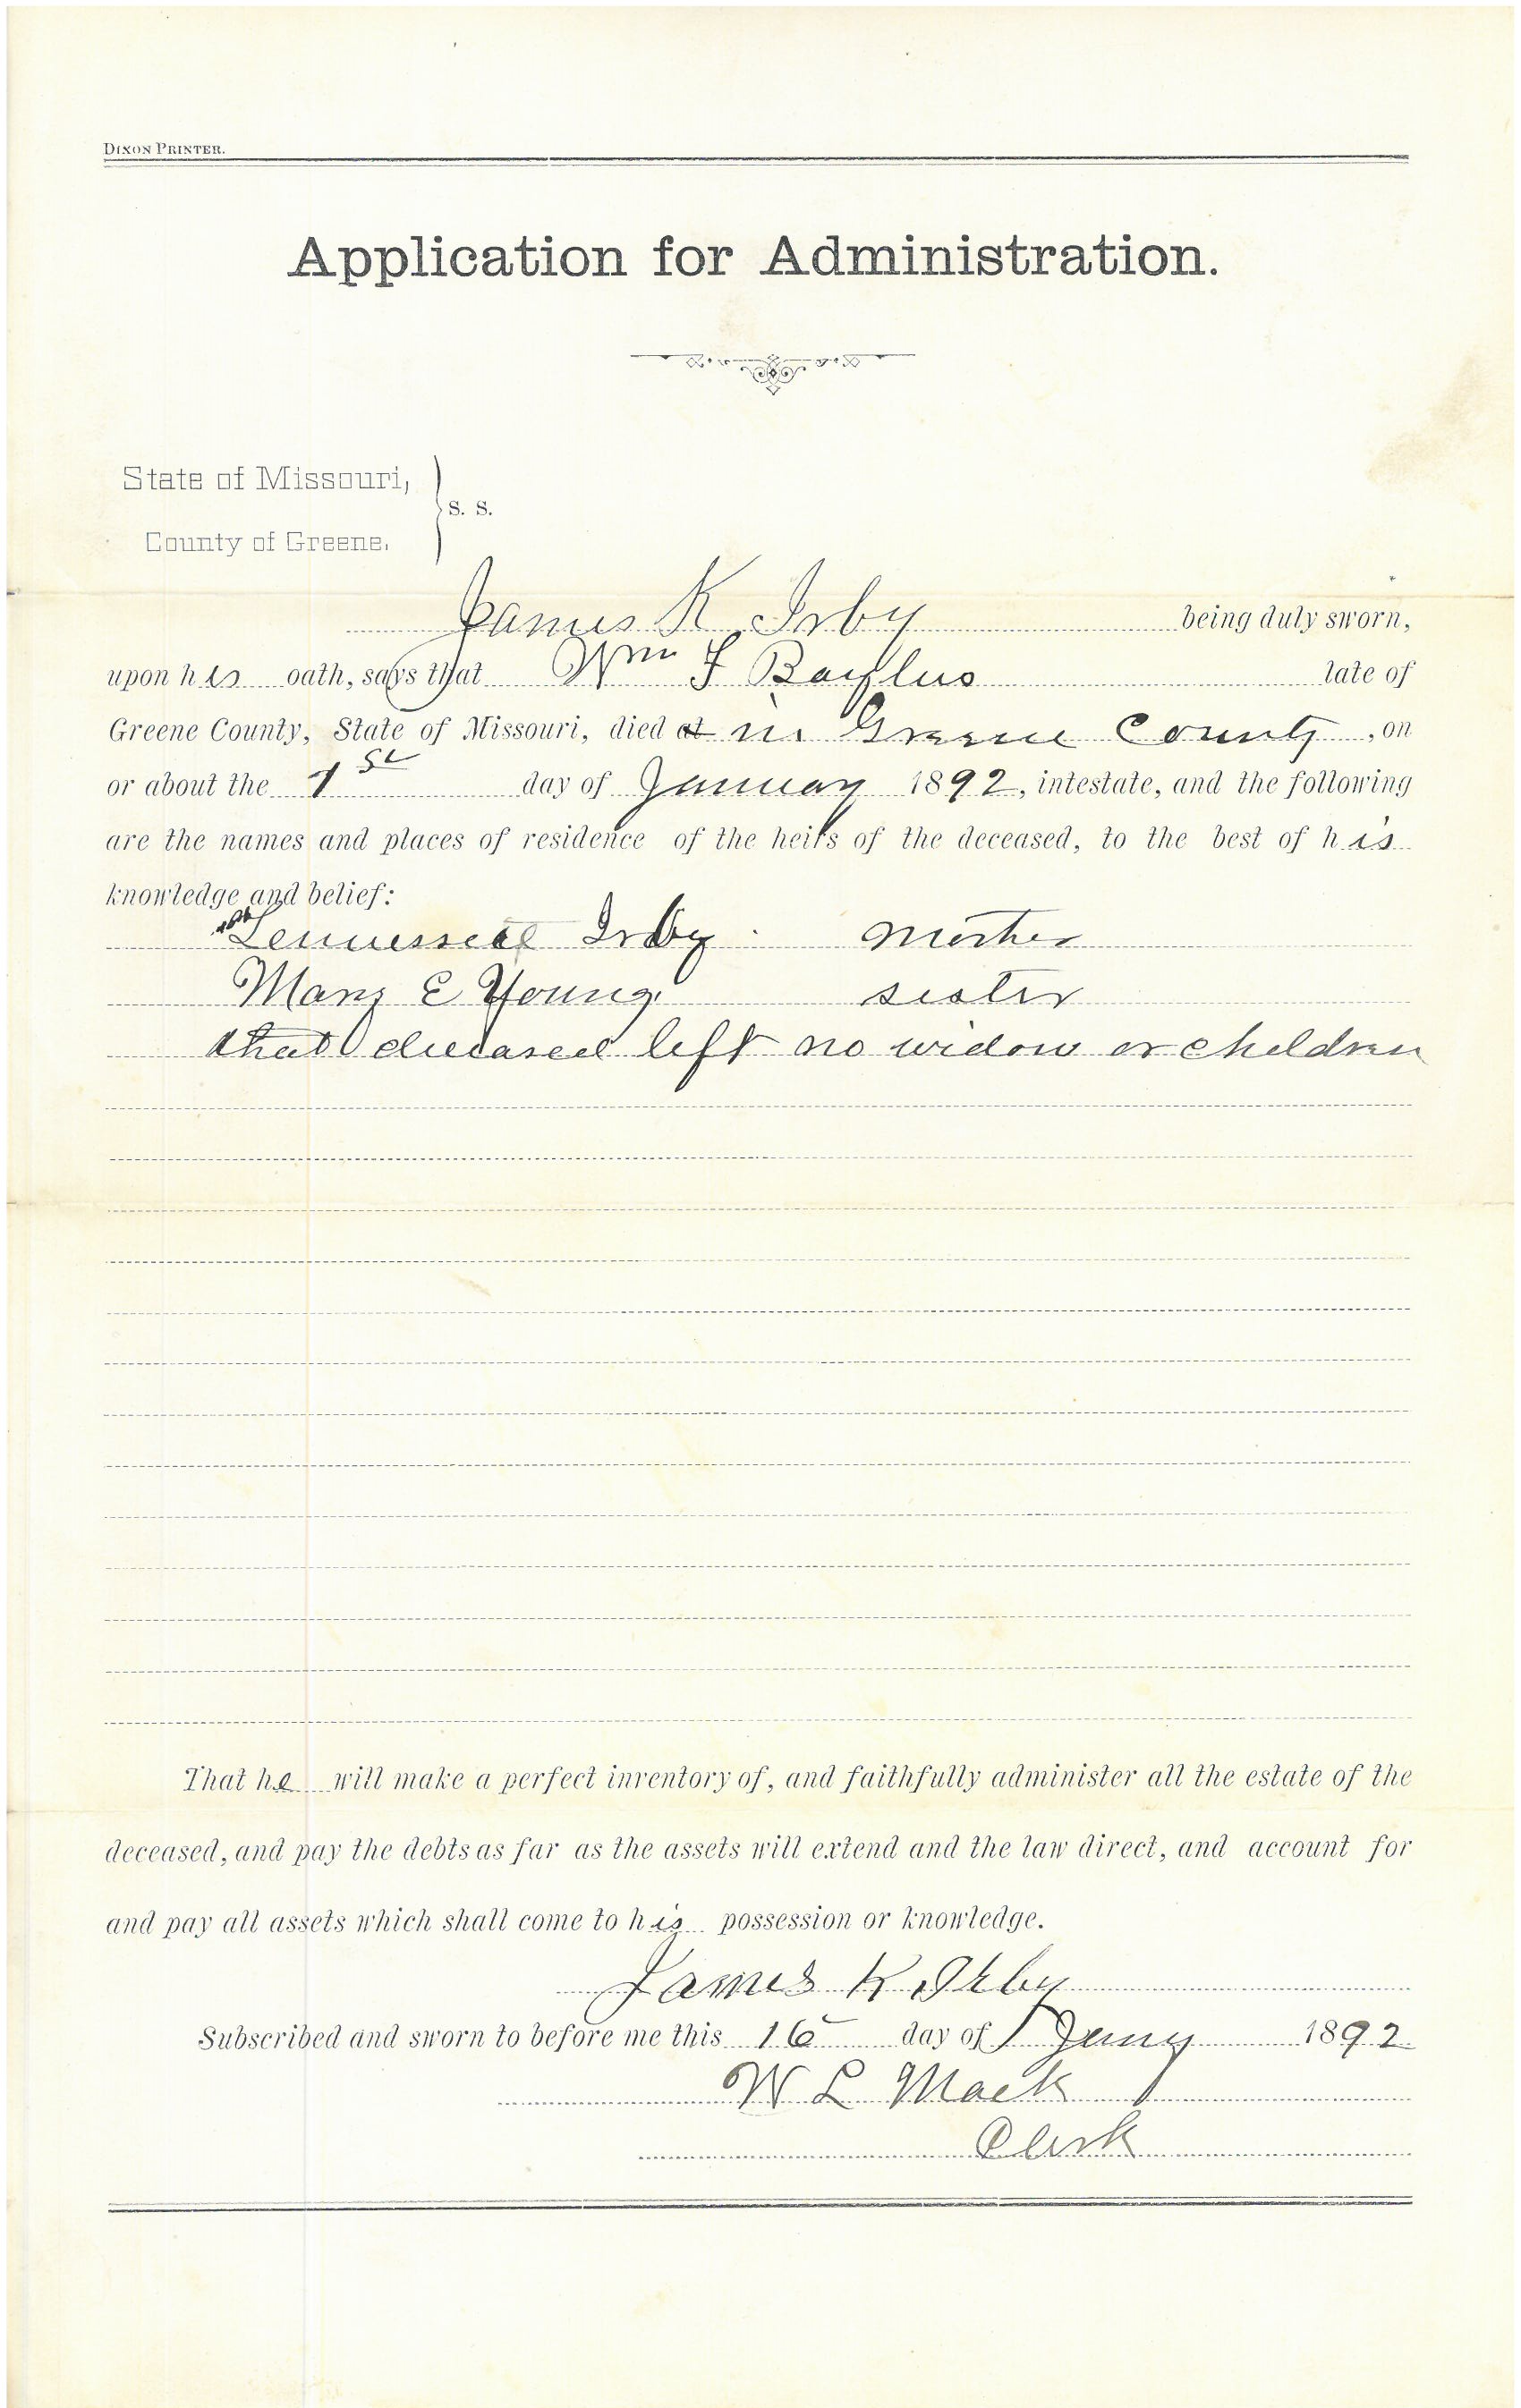 DIXON PRINTER.
Application for Administration.
State of Missouri,
S. S.
County of Greene.
James K Irby being duly sworn,
upon his oath, says that Wm F Bayllus late of
Greene County, State of Missouri, died at in Greene County, on
or about the 1st day of January 1892, intestate, and the following
are the names and places of residence of the heirs of the deceased, to the best of his
knowledge and belief:
Tennessee Irby mother
Mary E Young sister
that deceased left no widow or children
That he will make a perfect inventory of, and faithfully administer all the estate of the
deceased, and pay the debts as far as the assets will extend and the law direct, and account for
and pay all assets which shall come to his possession or knowledge.
James K Irby
Subscribed and sworn to before me this 16 day of Jany 1892
W L Mack
Clerk